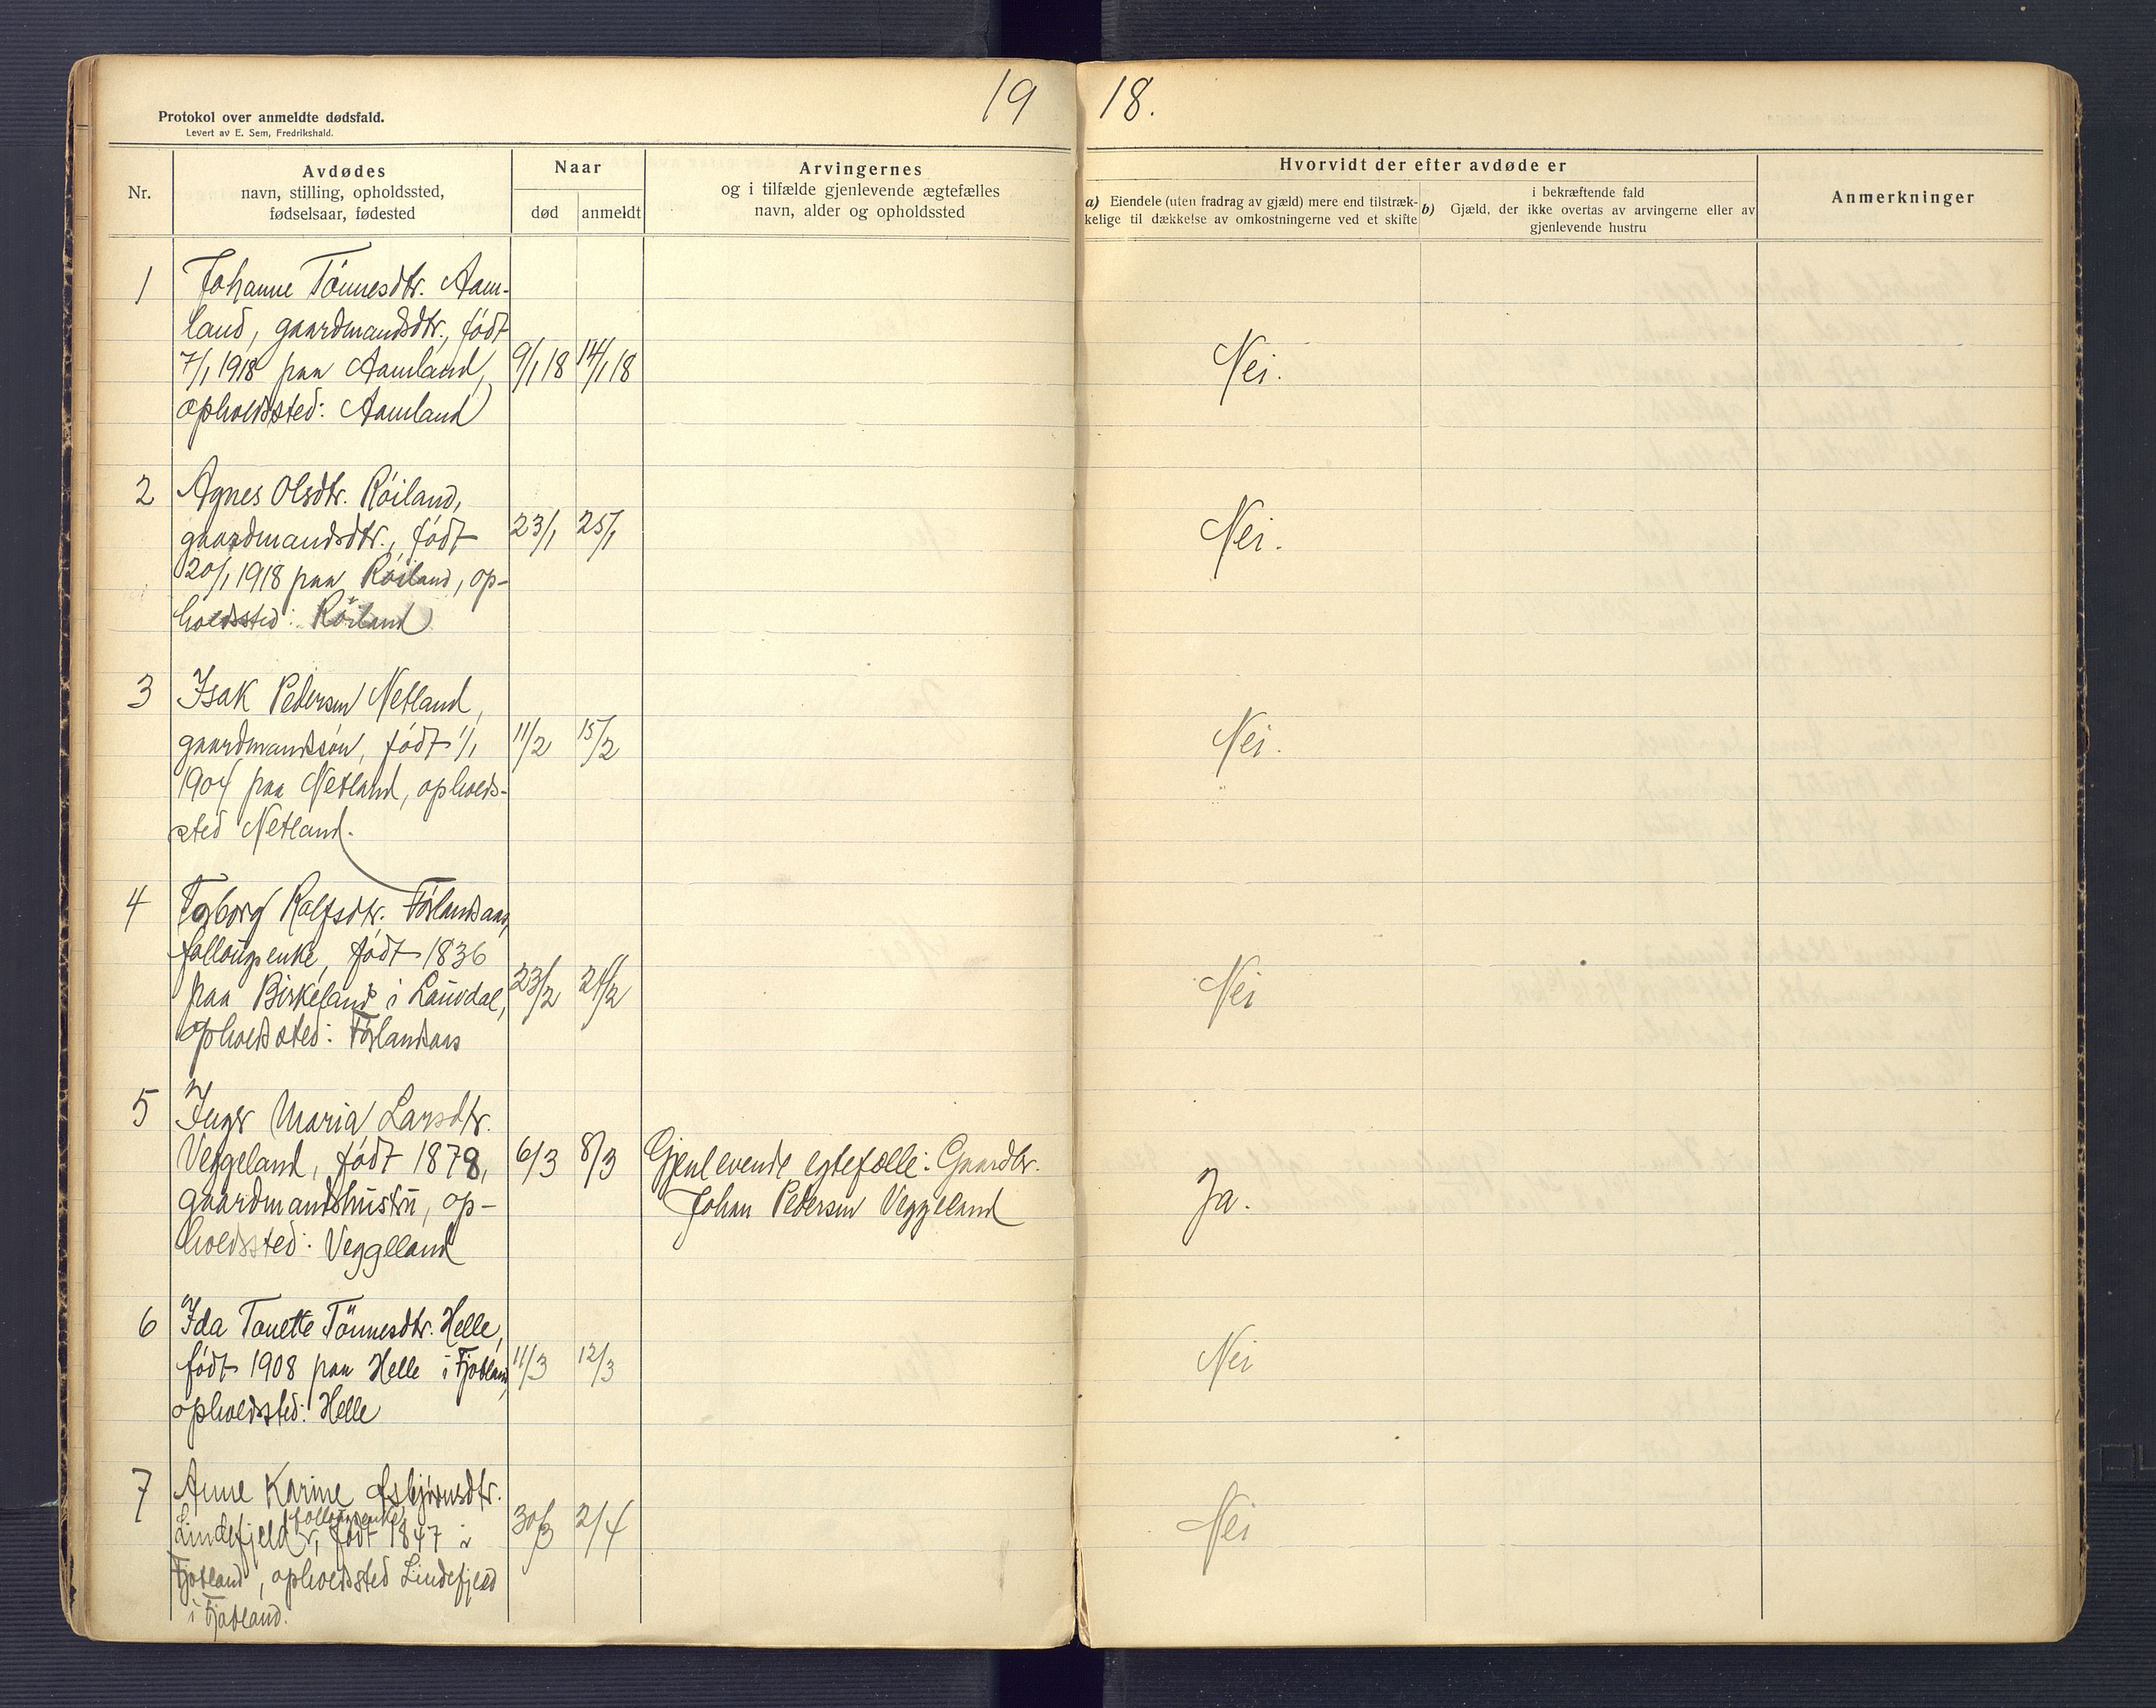 19 18.
Protokol over anmeldte dødsfald.
Levert av E. Sem, Fredrikshald.
Nr.
Avdødes
navn, stilling, opholdssted,
fødselsaar, fødested
Naar
død
anmeldt
Arvingernes
og i tilfælde gjenlevende ægtefælles
navn, alder og opholdssted
Hvorvidt der efter avdøde er
a) Eiendele (uten fradrag av gjæld) mere end tilstræk-
kelige til dækkelse av omkostningerne ved et skifte
i bekræftende fald
b) Gjæld, der ikke overtas av arvingerne eller av
gjenlevende hustru
Anmerkninger
1 Johanne Tönnesdtr. Aam-
land, gaardmandsdtr., født
7/1 1918 paa Aamland, 9/1 18 14/1 18 Nei.
opholdssted: Aamland
2 Agnes Olsdtr. Röiland,
gaardmandsdtr., født 23/1 25/1 Nei.
20/1 1918 paa Röiland, op-
holdssted: Röiland
3 Isak Pedersen Netland,
gaardmandssön, født 1/1 11/2 15/2 Nei.
1904 paa Netland, opholds-
sted Netland.
4 Tarborg Rolfsdtr. Förlandsaas,
follougsenke, født 1836
paa Birkeland i Lauvdal, 23/2 24/2 Nei
opholdssted: Förlandsaas
5 Inger Maria Larsdtr.
Veggeland, født 1878, 6/3 8/3 Gjenlevende egtefælle: Gaardbr.
gaardmandshustru, op- Johan Pedersen Veggeland Ja.
holdssted: Veggeland
6 Ida Tonette Tönnesdtr. Helle,
født 1908 paa Helle i Fjotland, 11/3 12/3 Nei
opholdssted: Helle
7 Anne Karine Asbjørnsdtr.
follougsenke,
Lindefjeld, født 1847 i 30/3 2/4 Nei
Fjotland, opholdssted Lindefjeld
i Fjotland.